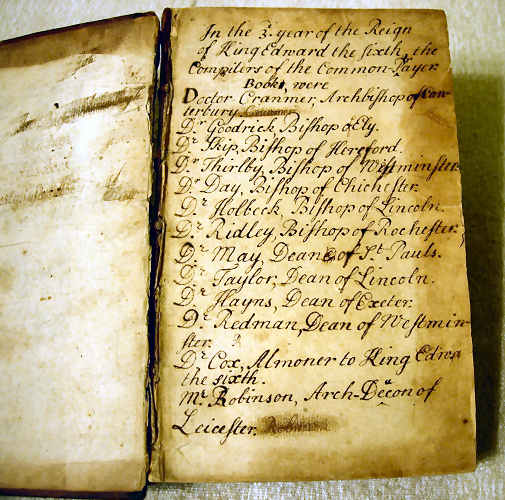 In the 3.ͩ year of the Reign
of King Edward the sixth, the
Compilers of the Common-Prayer
Book, were
Doctor Cranmer, Archbishop of Can-
terbury.
Dr Goodrick, Bishop of Ely.
Dr Skip, Bishop of Hereford.
Dr Thirlby, Bishop of Westminster.
Dr Day, Bishop of Chichester.
Dr Holbeck, Bishop of Lincoln.
Dr Ridley, Bishop of Rochester.
Dr May, Dean of St Pauls.
Dr Taylor, Dean of Lincoln.
Dr Hayns, Dean of Exeter.
Dr Redman, Dean of Westmin-
ster.
Dr Cox, Almoner to King Edwa
the sixth.
Mr Robinson, Arch-Deacon of
Leicester.